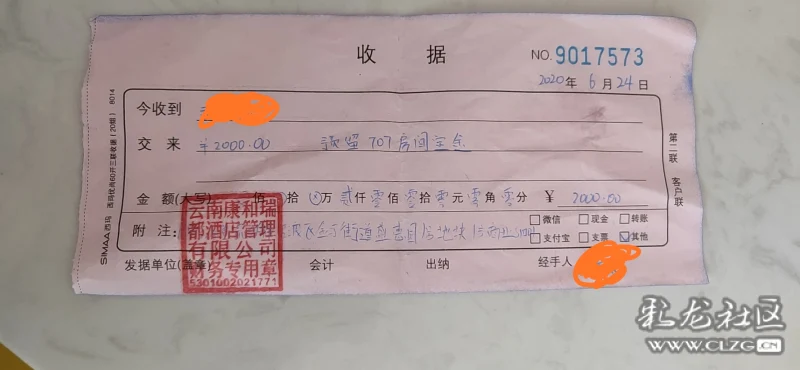 收 据
NO. 9017573
2020年 6月 24日
今收到
交 来 ¥2000.00 预留707房间定金
金 额(大写) 佰 拾 万 贰仟 零佰 零拾 零元 零角 零分 ¥ 2000.00
附 注:
微信 现金 转账
支付宝 支票 其他
发据单位(盖章) 会计 出纳 经手人
云南康和瑞
都酒店管理
有限公司
财务专用章
5301002021771
第二联 客户联
SIMAA西玛 西玛优尚60开三联收据(20组) 8014
彩龙社区
WWW.CLZG.CN